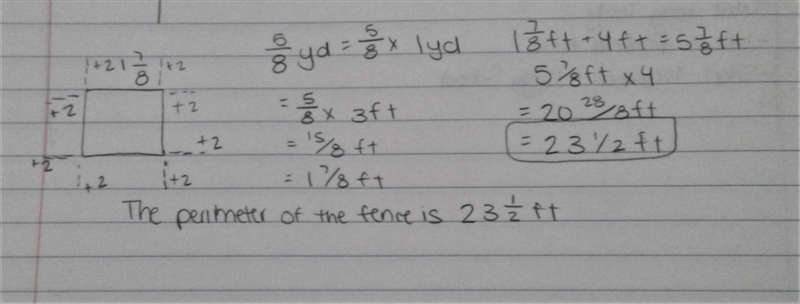 5/8 yd = 5/8 x 1yd
= 5/8 x 3ft
= 15/8 ft
= 1 7/8 ft
1 7/8 ft + 4ft = 5 7/8 ft
5 7/8 ft x 4
= 20 28/8 ft
= 23 1/2 ft
+2 1 7/8 +2
+2 +2
+2 +2
+2 +2
The perimeter of the fence is 23 1/2 ft